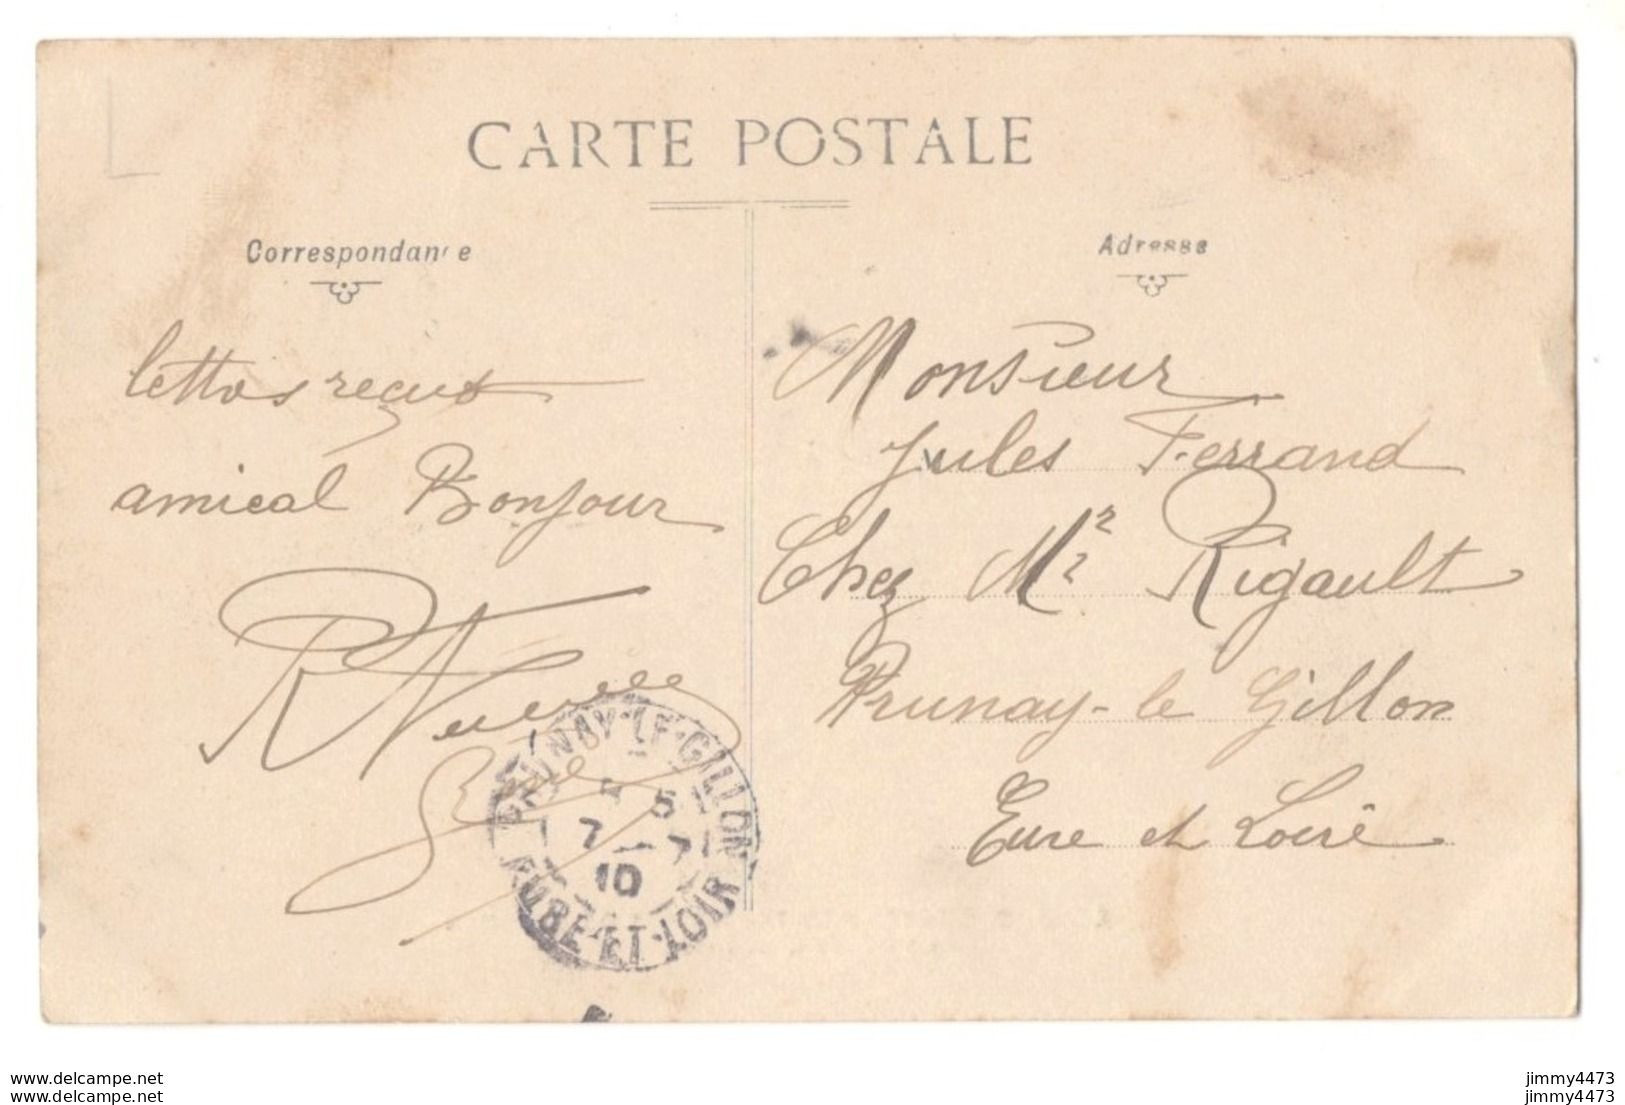 CARTE POSTALE
Correspondance
Adresse
lettres reçues
amical Bonjour
Monsieur
Jules Ferrand
Chez Mr Rigault
Prunay-le Gillon
Eure et Loire
PRUNAY-LE-GILLON
5
7 - 7
10
EURE-ET-LOIR
www.delcampe.net
www.delcampe.net
jimmy4473
jimmy4473